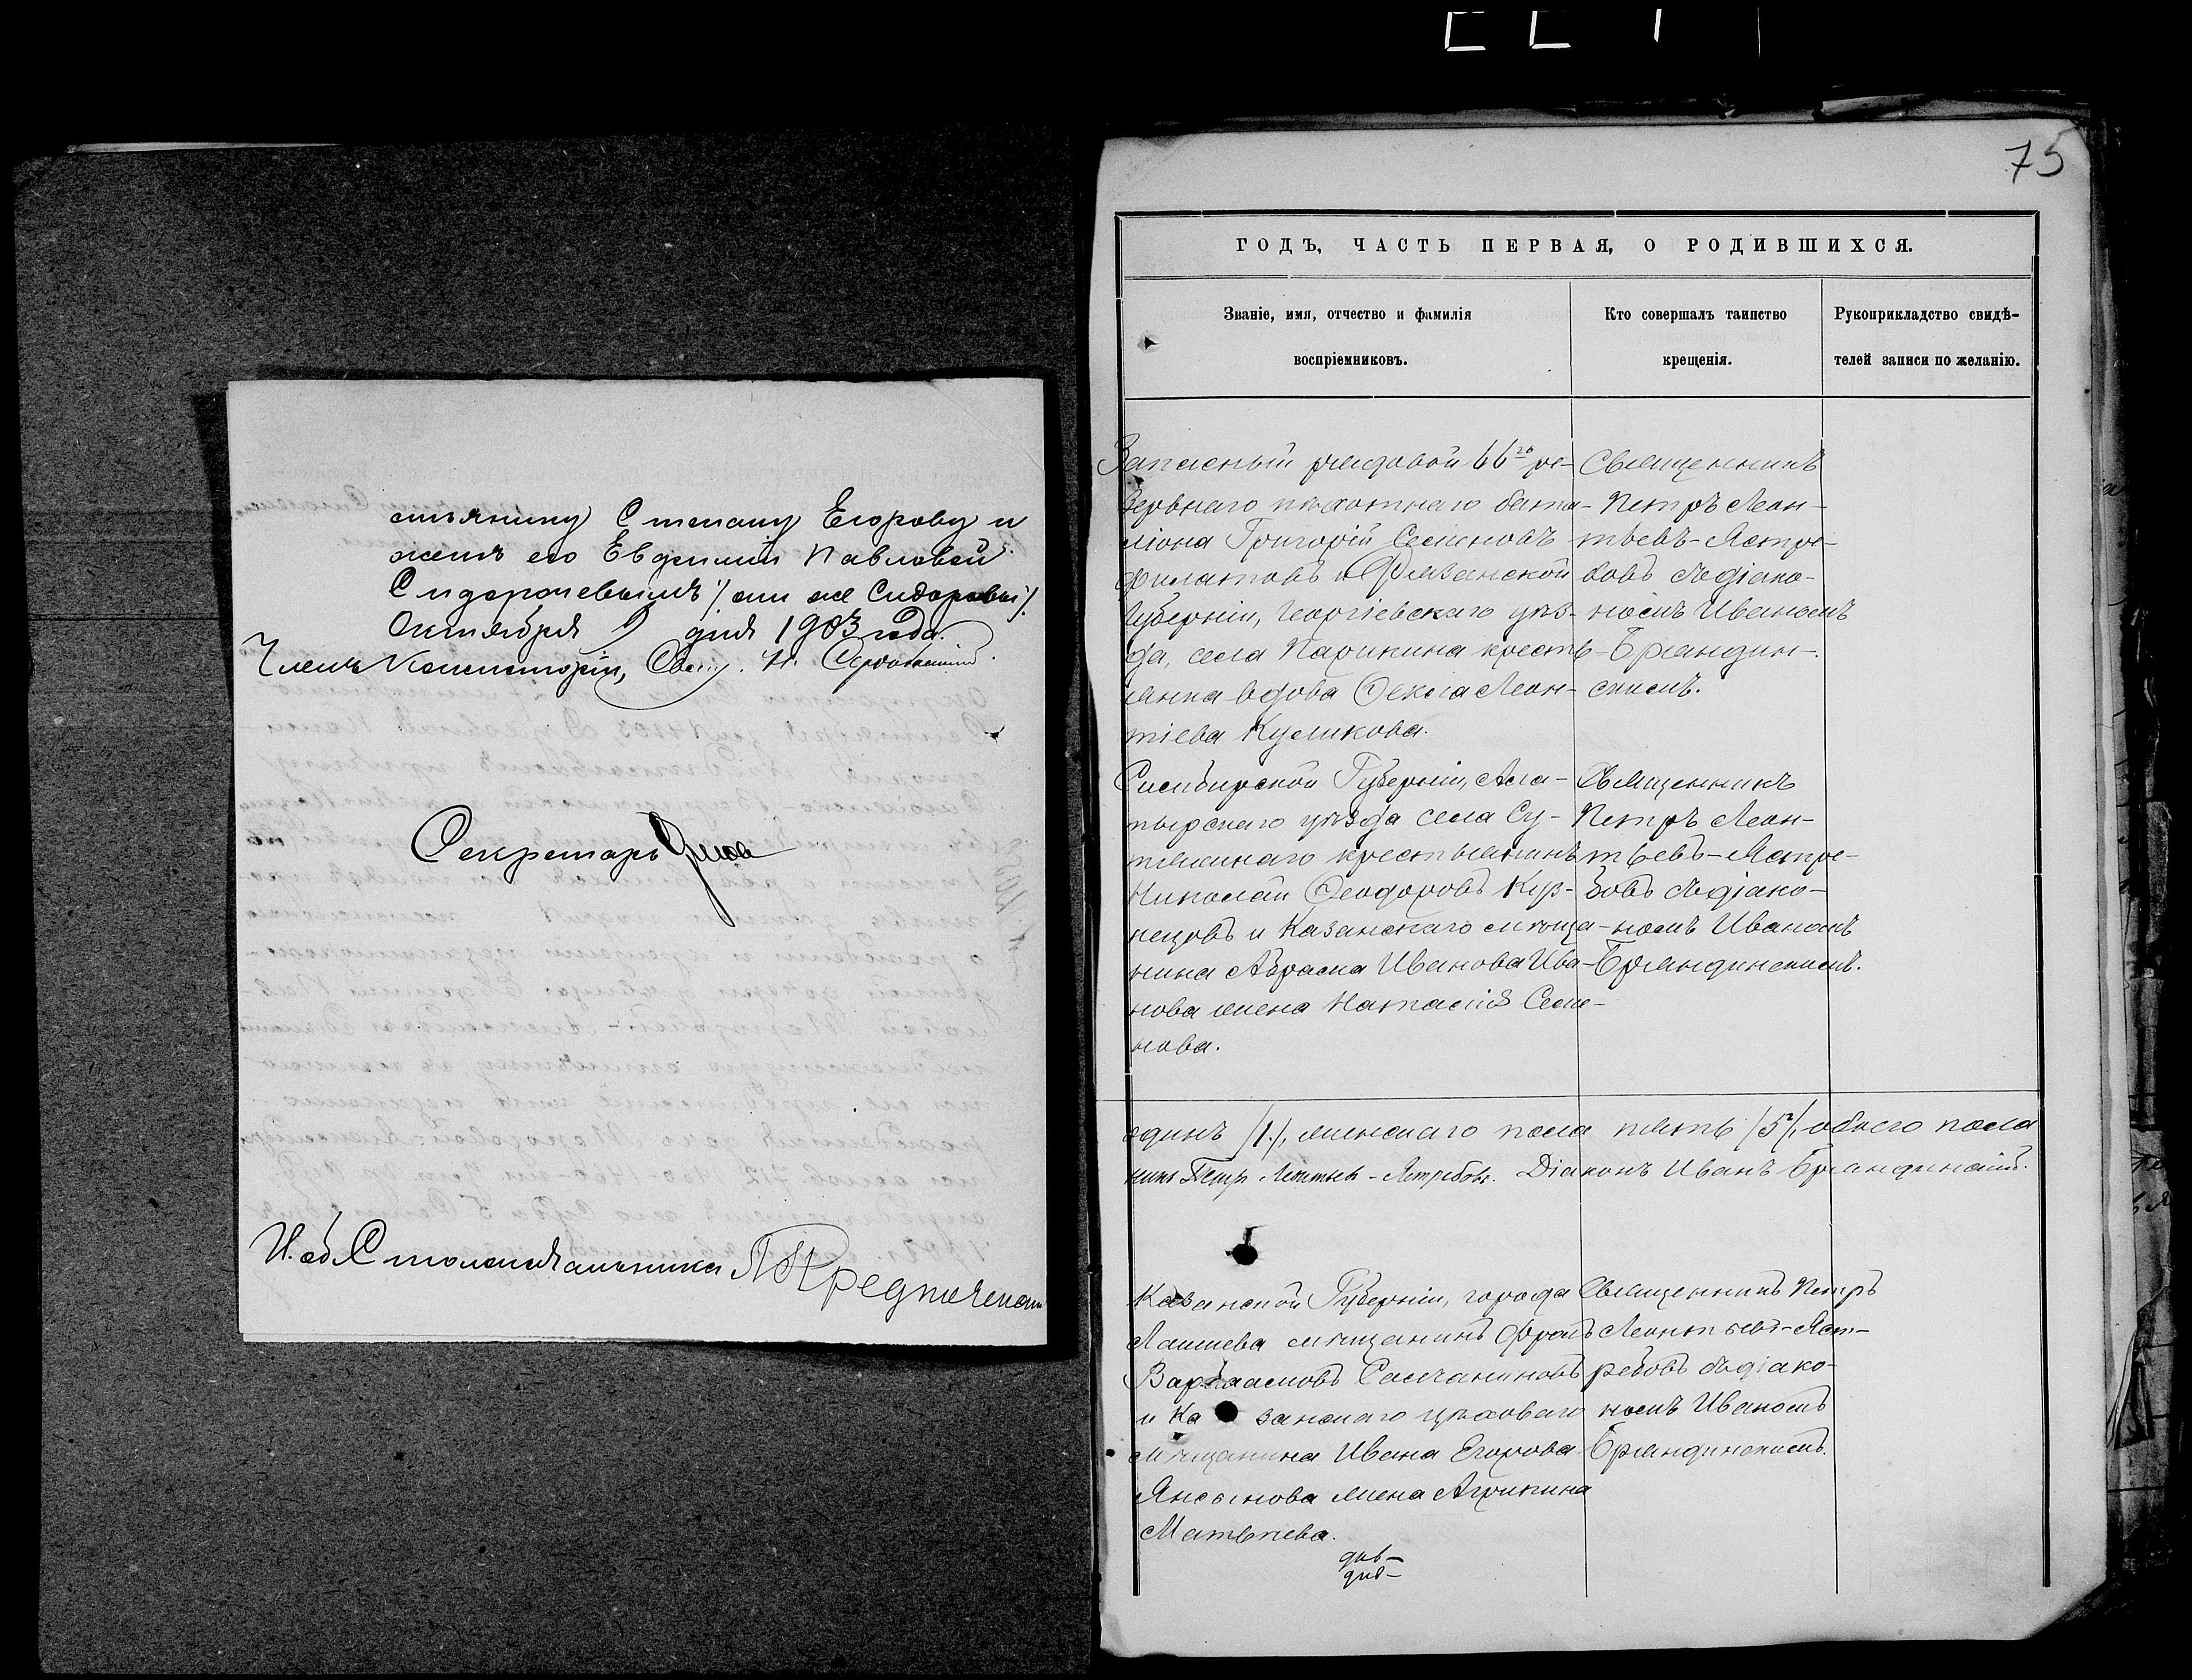 стьянину Степану Егорову и
женѣ его Евдокіи Павловой
Сидорычевымъ /они же Сидоровы/.
Октября 9 дня 1903 года.
Членъ Консисторіи, Свящ. Н.
Секретарь
И. об. Столоначальника
75
ГОДЪ, ЧАСТЬ ПЕРВАЯ, О РОДИВШИХСЯ.
Званіе, имя, отчество и фамилія
воспріемниковъ.
Кто совершалъ таинство
крещенія.
Рукоприкладство свидѣ-
телей записи по желанію.
Запасный рядовой 66го ре-
зервнаго пѣхотнаго бата-
ліона Григорій Семеновъ
Филатовъ и Рязанской
Губерніи, Георгіевскаго уѣз-
да, села Парикина кресть-
янка вдова Ѳекла Леон-
тіева Куликова.
Священникъ
Петръ Леон-
тьевъ-Ястре-
бовъ съ діако-
номъ Иваномъ
Бряндин-
скимъ.
Симбирской Губерніи, Ала-
тырскаго уѣзда села Су-
крестьянинъ
Николай Ѳеодоровъ Куз-
нецовъ и Казанскаго мѣща-
нина Абрама Иванова Ива-
нова жена Наталія Семе-
нова.
Священникъ
Петръ Леон-
тьевъ-Ястре-
бовъ съ діако-
номъ Иваномъ
Бряндинскимъ.
одинъ /1./, женскаго пола пять /5/, обоего пола
никъ Петръ Леонтьевъ-Ястребовъ. Діаконъ Иванъ Бряндинскій.
Казанской Губерніи, города
Лаишева мѣщанинъ Фролъ
Варлаамовъ Самчаниновъ
и Казанскаго цѣховаго
мѣщанина Ивана Егорова
жена Агрипина
Матвѣева.
Священникъ Петръ
Леонтьевъ-Яст-
ребовъ съ діако-
номъ Иваномъ
Бряндинскимъ.